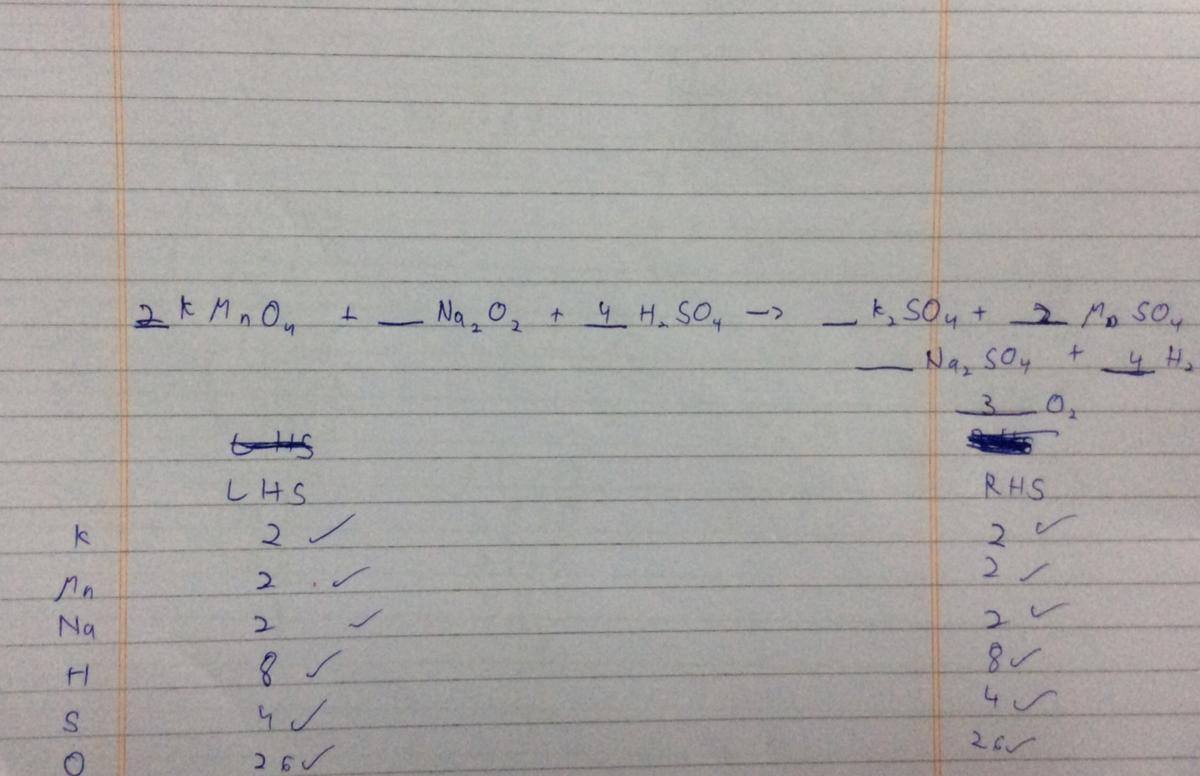 2 K MnO₄ + __ Na₂O₂ + 4 H₂SO₄ → __ K₂SO₄ + 2 MnSO₄
__ Na₂SO₄ + 4 H₂
3 O₂
LHS RHS
K 2 ✓ 2 ✓
Mn 2 ✓ 2 ✓
Na 2 ✓ 2 ✓
H 8 ✓ 8 ✓
S 4 ✓ 4 ✓
O 26 ✓ 26 ✓